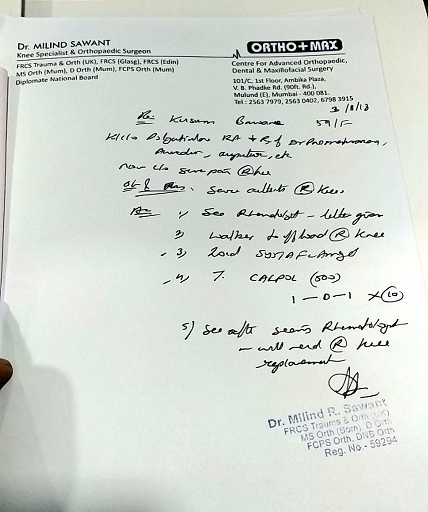 Dr. MILIND SAWANT
Knee Specialist & Orthopaedic Surgeon
FRCS Trauma & Orth (UK), FRCS (Glasg), FRCS (Edin)
MS Orth (Mum), D Orth (Mum), FCPS Orth (Mum)
Diplomate National Board
ORTHO+MAX
Centre For Advanced Orthopaedic,
Dental & Maxillofacial Surgery
101/C, 1st Floor, Ambika Plaza,
V. B. Phadke Rd. (90ft. Rd.),
Mulund (E), Mumbai - 400 081.
Tel.: 2563 7979, 2563 0402, 6798 3915
Re: Kusum
59/F
RA
etc
Now c/o severe pain (R) knee
Severe arthritis (R) Knee.
1) See Rheumatologist - letter given
2) Walker to offload (R) Knee
3)
4) T. CALPOL (500)
1 - 0 - 1 x (10)
5) See after seeing Rheumatologist
- will need (R) knee
replacement
Dr. Milind R. Sawant
FRCS Trauma & Orth (UK)
MS Orth (Bom), D Orth
FCPS Orth, DNB Orth
Reg. No.- 59294